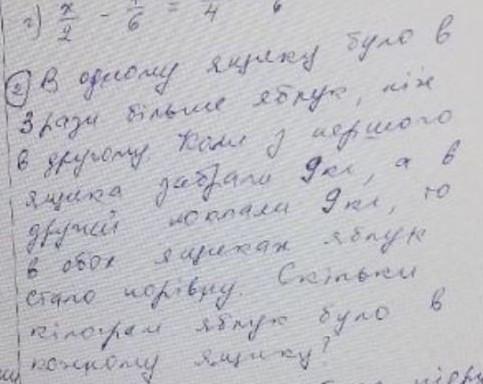 г) x/2 - 1/6 = 4 6
② В одному ящику було в
3 рази більше яблук, ніж
в другому. Коли з першого
ящика забрали 9кг, а в
другий поклали 9кг, то
в обох ящиках яблук
стало порівну. Скільки
кілограм яблук було в
кожному ящику?